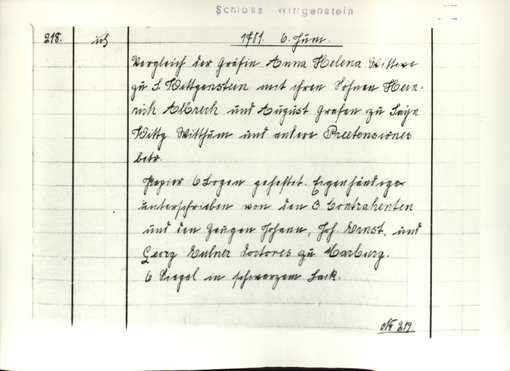 Schloss Wittgenstein
218. 1701. 6. Juni.
Vergleich der Gräfin Anna Helena Wittwe
zu S. Wittgenstein mit ihren Söhnen Hein-
rich Albrech und August Grafen zu Sayn
Wittg Witthum und andere Praetensiones
betr.
Papier 6 Bogen geheftet. Eigenhändige
unterschrieben von den 3 Contrahenten
und den Zeugen Johann, Joh. Ernst, und
Georg Doctores zu Marburg.
6 Siegel in schwarzem Lack.
No 219.